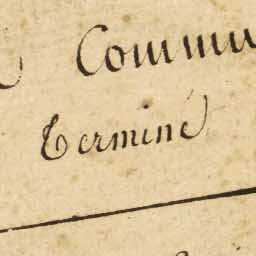 Commu
Terminé